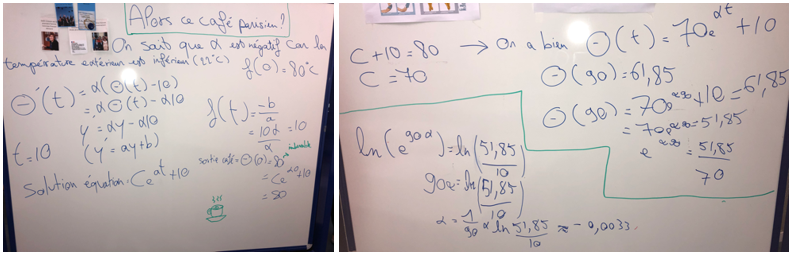 Alors ce café parisien ?
On sait que α est négatif car la
température extérieur est inférieur (12°C)
f(0) = 80°C
Θ'(t) = α(Θ(t) - 10)
= αΘ(t) - α10
y' = αy - α10
(y' = ay + b)
t = 10
Solution équation : Ce^{αt} + 10
f(t) = -b/a
= 10α/α = 10
sortie café = Θ(0) = 80
= Ce^{α0} + 10
= 80
C + 10 = 80 → On a bien Θ(t) = 70e^{αt} + 10
C = 70
Θ(90) = 61,85
Θ(90) = 70e^{α90} + 10 = 61,85
= 70e^{α90} = 51,85
e^{α90} = 51,85/70
ln(e^{90α}) = ln(51,85/70)
90α = ln(51,85/70)
α = 1/90 × ln 51,85/70 ≈ -0,0033